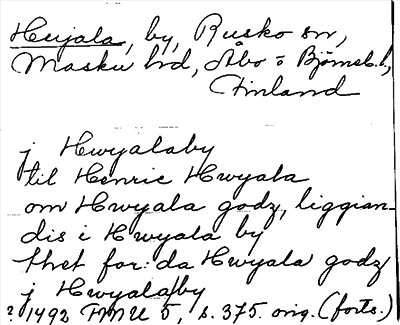 Heujala, by, Rusko sn,
Masku hd, Åbo o Björneb. l.,
Finland
j Hwyalaby
til Henric Hwyala
om Hwyala godz, liggian-
dis i Hwyala by
thet for:da Hwyala godz
j Hwyalaby
? 1492 FMU 5, s. 375. orig. (forts.)